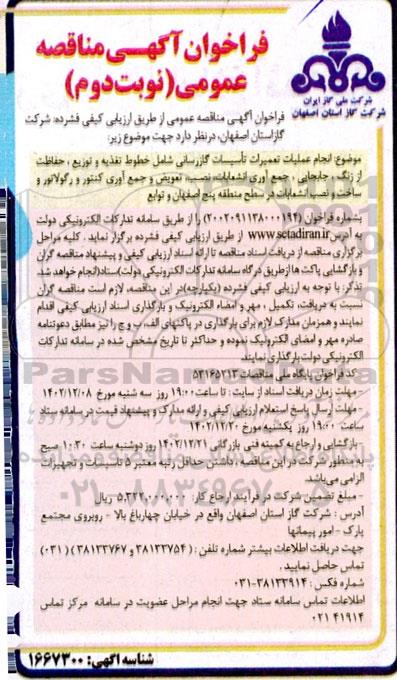 فراخوان آگهـی مناقصه
عمومی (نوبت دوم)
شرکت ملی گاز ایران
شرکت گاز استان اصفهان
فراخوان آگهی مناقصه عمومی از طریق ارزیابی کیفی فشرده: شرکت
گاز استان اصفهان، در نظر دارد جهت موضوع زیر:
موضوع: انجام عملیات تعمیرات تأسیسات گازرسانی شامل خطوط تغذیه و توزیع ، حفاظت
از زنگ ، جابجایی ، جمع آوری انشعابات، نصب، تعویض و جمع آوری کنتور و رگولاتور و
ساخت و نصب انشعابات در سطح منطقه پنج اصفهان و توابع
بشماره فراخوان (۲۰۰۲۰۹۱۱۳۸۰۰۰۱۹۴) را از طریق سامانه تدارکات الکترونیکی دولت
به آدرس www.setadiran.ir از طریق ارزیابی کیفی فشرده برگزار نماید . کلیه مراحل
برگزاری مناقصه از دریافت اسناد مناقصه تا ارائه اسناد ارزیابی کیفی و پیشنهاد مناقصه گران
و بازگشایی پاکت ها از طریق درگاه سامانه تدارکات الکترونیکی دولت(ستاد) انجام خواهد شد.
تذکر: با توجه به ارزیابی کیفی فشرده (یکپارچه) در این مناقصه، لازم است مناقصه گران
نسبت به دریافت، تکمیل ، مهر و امضاء الکترونیک و بارگذاری اسناد ارزیابی کیفی اقدام
نمایند و همزمان مدارک لازم برای بارگذاری در پاکتهای الف، ب و ج را نیز مطابق دعوتنامه
صادره مهر و امضای الکترونیک نموده و حداکثر تا تاریخ مشخص شده در سامانه تدارکات
الکترونیکی دولت بارگذاری نمایند.
کد فراخوان پایگاه ملی مناقصات ۵۳۱۶۵۲۱۳
- مهلت زمان دریافت اسناد از سایت : تا ساعت ۱۹:۰۰ روز سه شنبه مورخ ۱۴۰۲/۱۲/۰۸
- مهلت ارسال پاسخ استعلام ارزیابی کیفی و ارائه مدارک و پیشنهاد قیمت در سامانه ستاد
ساعت ۱۹:۰۰ روز یکشنبه مورخ ۱۴۰۲/۱۲/۲۰
- بازگشایی و ارجاع به کمیته فنی بازرگانی ۱۴۰۲/۱۲/۲۱ روز دوشنبه ساعت ۱۰:۳۰ صبح
به منظور شرکت در این مناقصه ، داشتن حداقل رتبه معتبر ۵ تاسیسات و تجهیزات
الزامی می‌باشد
- مبلغ تضمین شرکت در فرآیند ارجاع کار: ۵.۳۲۲.۰۰۰.۰۰۰ ریال
آدرس : شرکت گاز استان اصفهان واقع در خیابان چهارباغ بالا - روبروی مجتمع
پارک - امور پیمانها
جهت دریافت اطلاعات بیشتر شماره تلفن : ( ۳۸۱۳۳۷۵۴ و ۳۸۱۳۳۷۶۷ ) ( ۰۳۱ )
تماس حاصل نمایید .
شماره فکس : ۳۸۱۳۳۹۱۴-۰۳۱
اطلاعات تماس سامانه ستاد جهت انجام مراحل عضویت در سامانه مرکز تماس
۴۱۹۱۴ ۰۲۱
شناسه آگهی: ۱۶۶۷۳۰۰
ParsNamadData
۰۲۱-۸۸۳۴۹۶۷۰